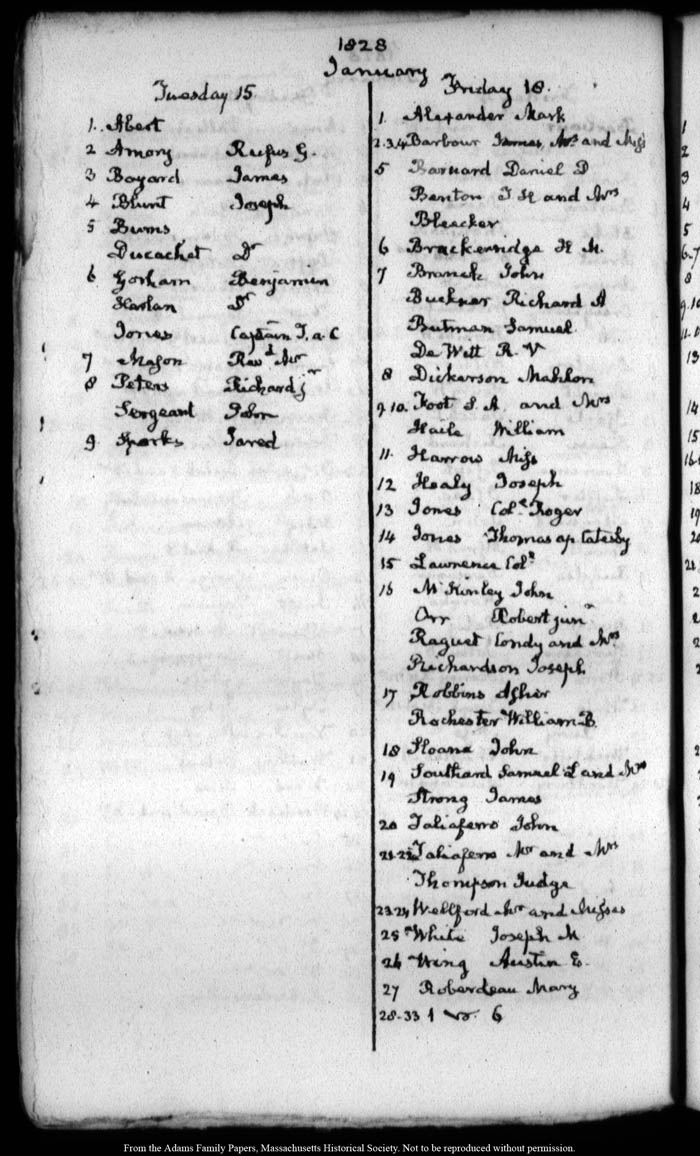 1828
January
Tuesday 15
1. Abert
2 Amory Rufus G.
3 Bayard James
4 Blunt Joseph
5 Burns
Ducachet Dr
6 Gorham Benjamin
Harlan Dr
Jones Captain T. a. C
7 Mason Revd. Mr
8 Peters Richard Jr
Sergeant John
9 Sparks Jared
Friday 18.
1 Alexander Mark
2.3.4 Barbour James, Mrs. and Miss
5 Barnard Daniel D
Benton T H and Mrs
Bleecker
6 Brackenridge H. M.
7 Branch John
Buckner Richard A
Butman Samuel
De Witt R. V
8 Dickerson Mahlon
9.10. Foot S. A. and Mrs
Haile William
11. Harrow Miss
12 Healy Joseph
13 Jones Coll. Roger
14 Jones Thomas ap Catesby
15 Lawrence Coll
16 McKinley John
Orr Robert junr
Raguet Condy and Mrs
Richardson Joseph
17 Robbins Asher
Rochester William B.
18 Sloane John
19 Southard Samuel L and Mrs
Strong James
20 Taliaferro John
21-22 Taliaferro Mr and Mrs
Thompson Judge
23 24 Wellford Mr and Misses
25 White Joseph M
26 Wing Austin E.
27 Roberdeau Mary
28-33 1 6
From the Adams Family Papers, Massachusetts Historical Society. Not to be reproduced without permission.